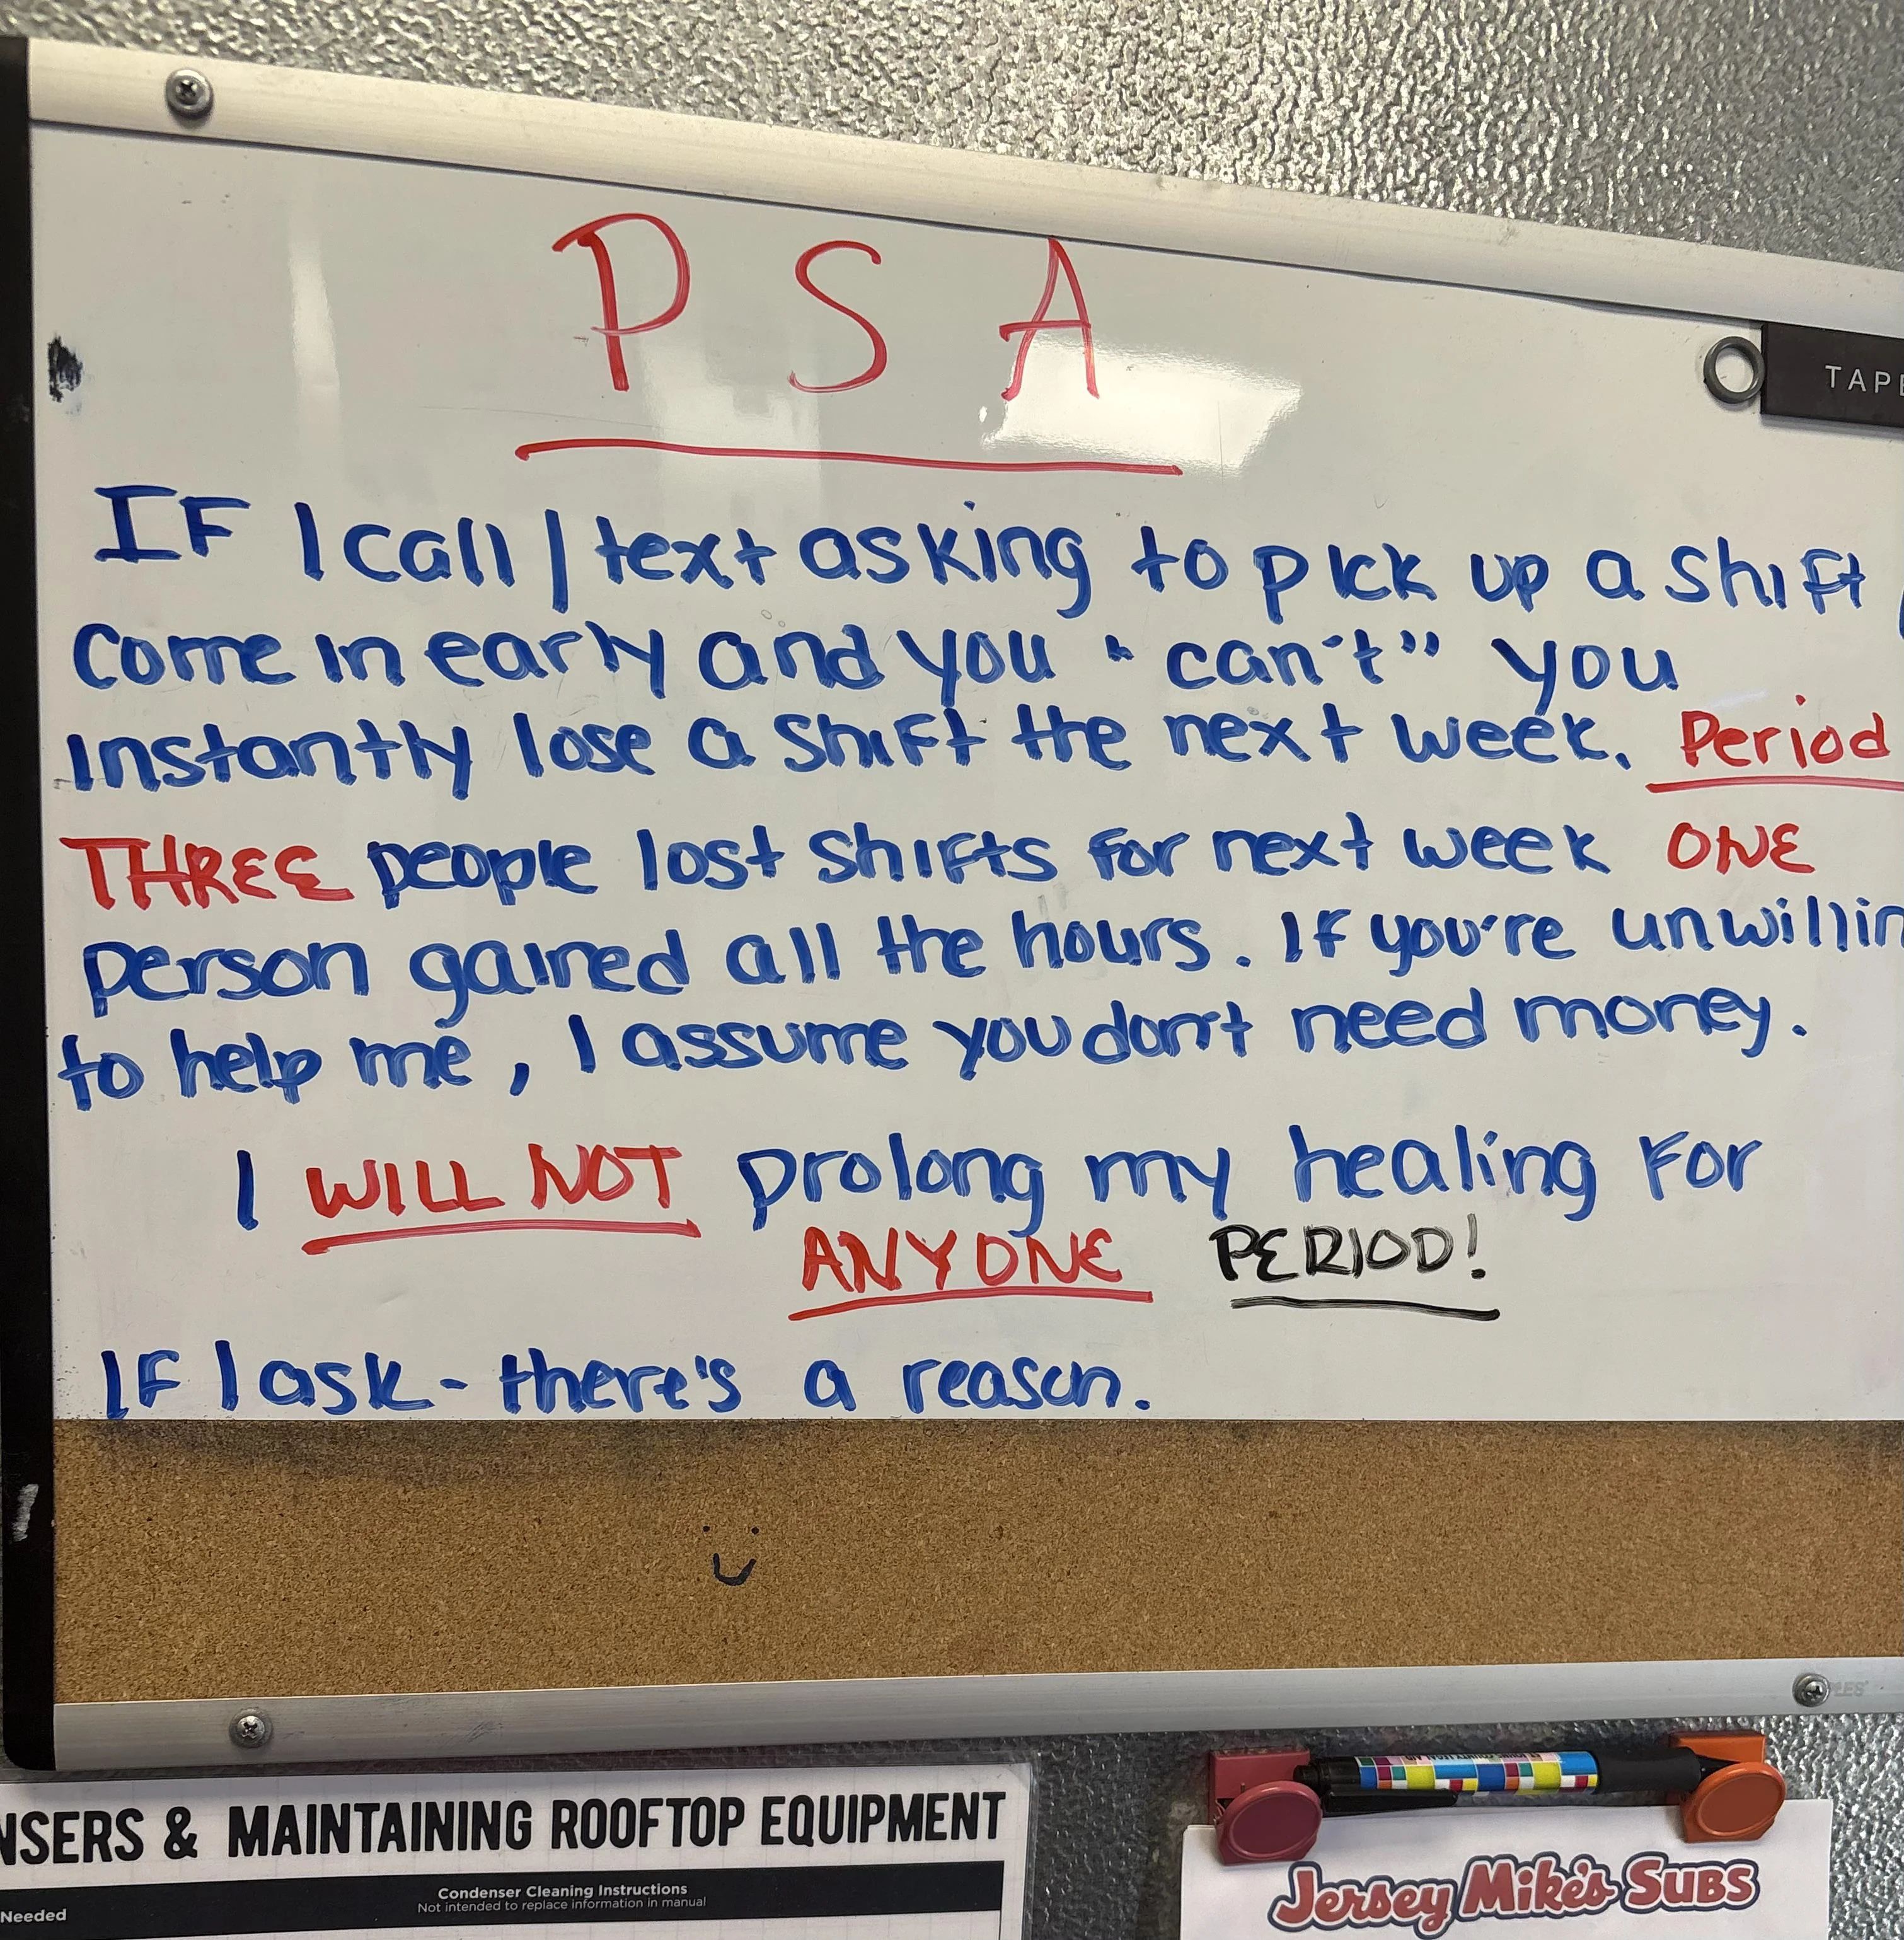 P S A
TAPE
IF I call / text asking to pick up a shift
come in early and you "can't" you
instantly lose a shift the next week. Period
THREE people lost shifts for next week ONE
person gained all the hours. If you're unwillin
to help me, I assume you don't need money.
I WILL NOT prolong my healing for
ANYONE PERIOD!
If I ask - there's a reason.
NSERS & MAINTAINING ROOFTOP EQUIPMENT
Condenser Cleaning Instructions
Not intended to replace information in manual
Needed
Jersey Mike's Subs